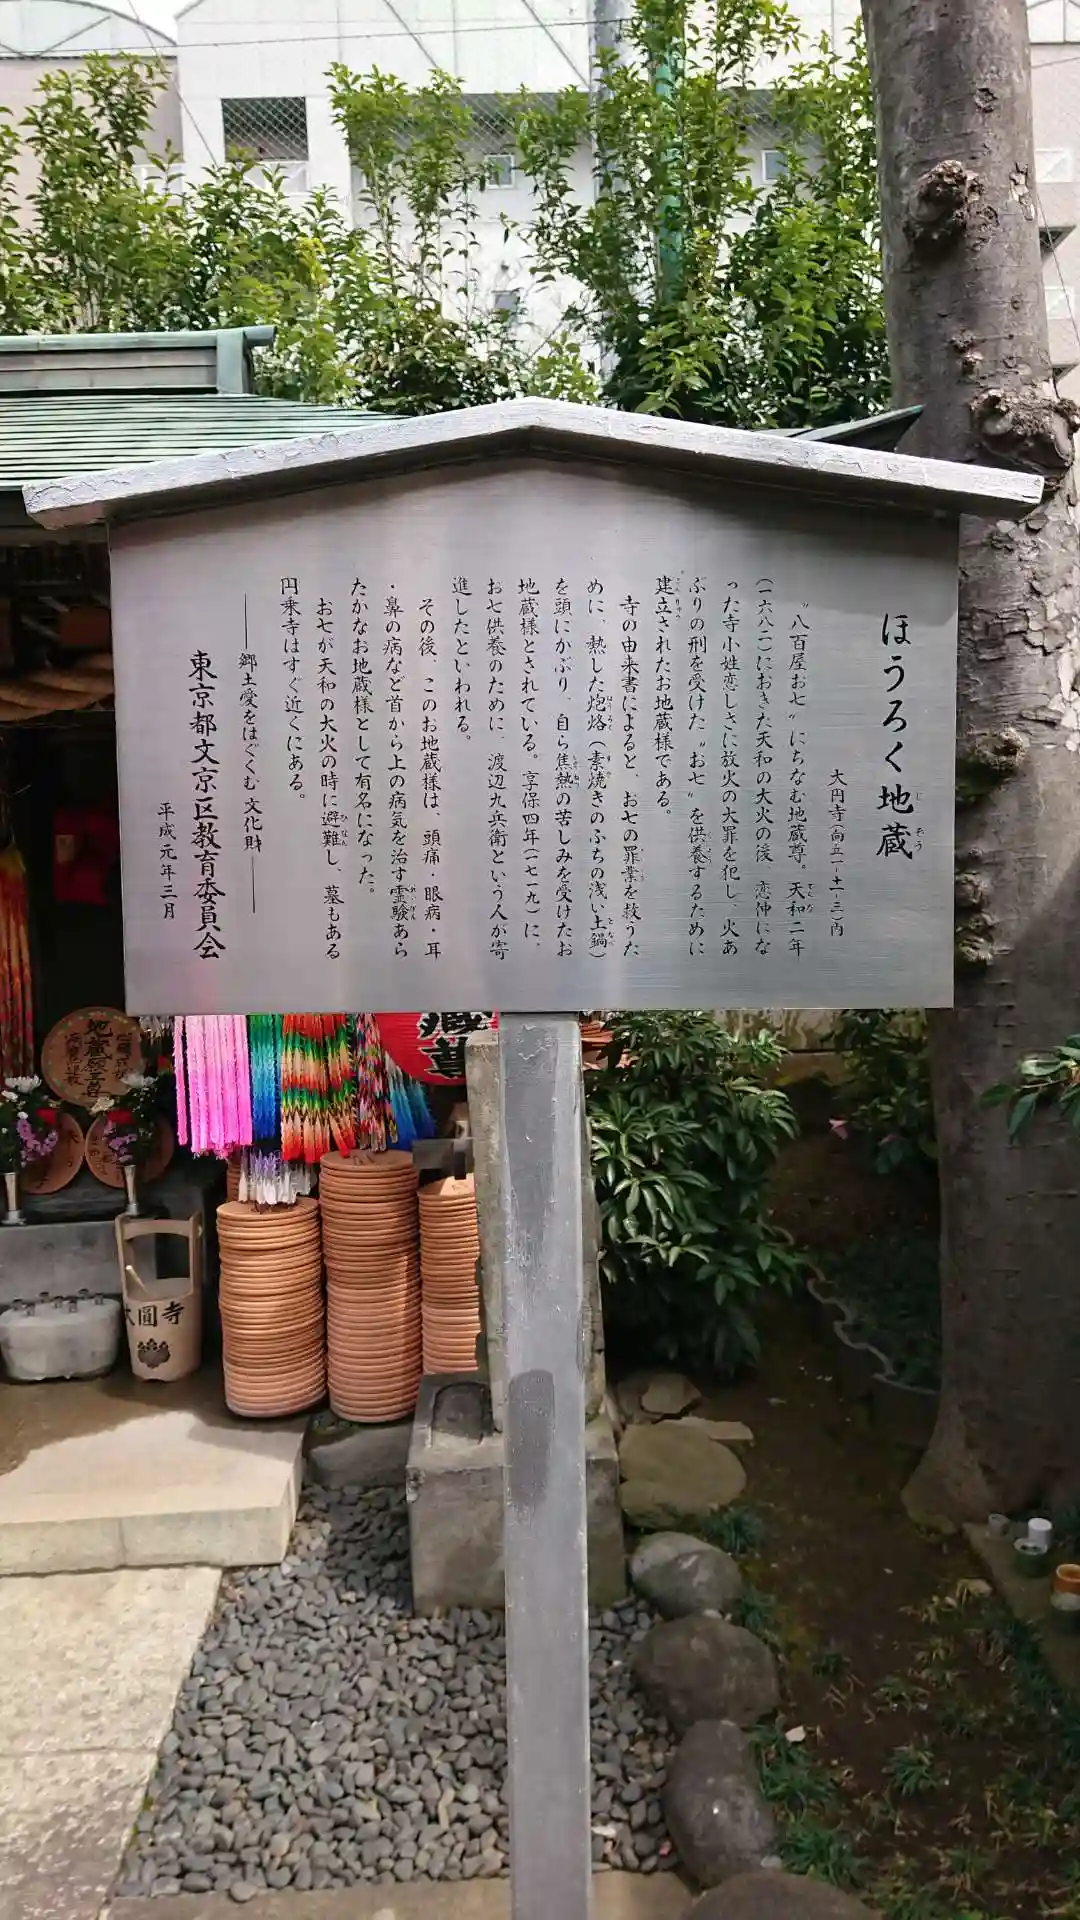 ほうろく地蔵
大円寺(向丘一-十一-三)内
〝八百屋お七〟にちなむ地蔵尊。天和二年
(一六八二)におきた天和の大火の後、恋仲にな
った寺小姓恋しさに放火の大罪を犯し、火あ
ぶりの刑を受けた〝お七〟を供養するために
建立されたお地蔵様である。
寺の由来書によると、お七の罪業を救うた
めに、熱した炮烙(素焼きのふちの浅い土鍋)
を頭にかぶり、自ら焦熱の苦しみを受けたお
地蔵様とされている。享保四年(一七一九)に、
お七供養のために、渡辺九兵衛という人が寄
進したといわれる。
その後、このお地蔵様は、頭痛・眼病・耳
・鼻の病など首から上の病気を治す霊験あら
たかなお地蔵様として有名になった。
お七が天和の大火の時に避難し、墓もある
円乗寺はすぐ近くにある。
――郷土愛をはぐくむ文化財――
東京都文京区教育委員会
平成元年三月
蔵尊
地蔵願王尊
大圓寺